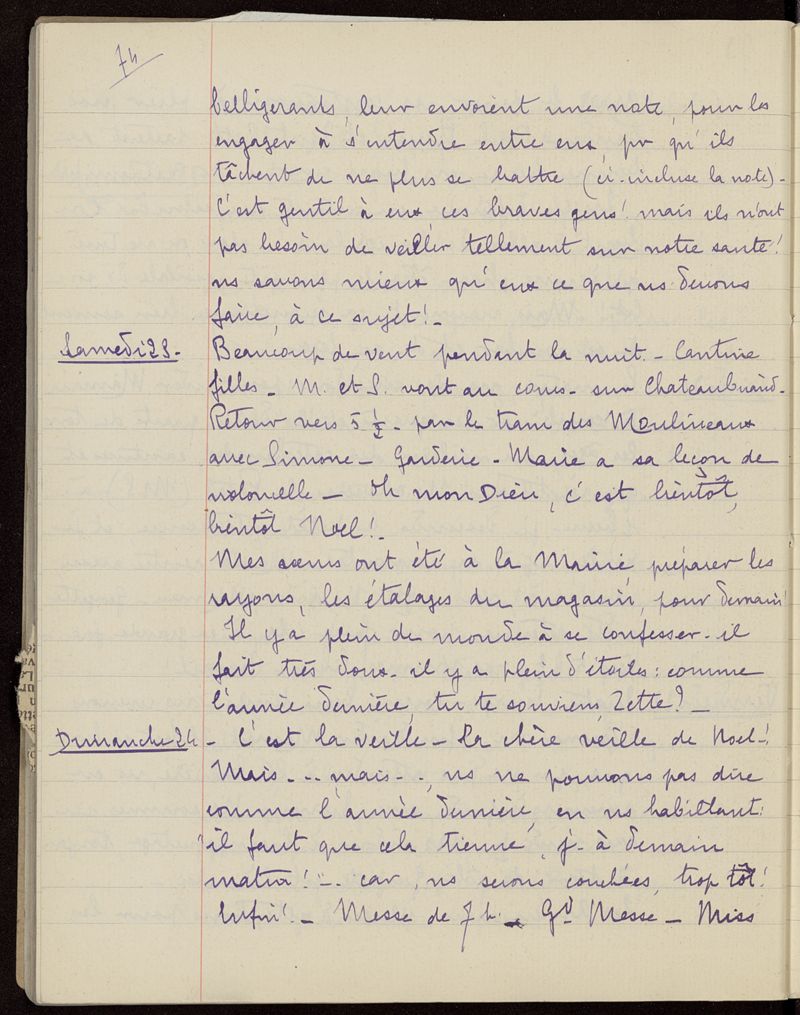 74
belligerants, leur envoient une note, pour les
engager à s'entendre entre eux, pr qu'ils
tâchent de ne plus se battre (ci-incluse la note)-
C'est gentil à eux ces braves gens! mais ils n'ont
pas besoin de veiller tellement sur notre santé!
ns savons mieux qu'eux ce que ns devons
faire, à ce sujet!-
Samedi 23.- Beaucoup de vent pendant la nuit.- Cantine
filles- M. et S. vont au cours- sur Chateaubriand.
Retour vers 5 1/2- par le tram des Moulineaux
avec Simone- Garderie- Marie a sa leçon de
violoncelle- Oh mon Dieu, c'est bientôt,
bientôt Noel!-
Mes sœurs ont été à la Mairie, préparer les
rayons, les étalages du magasin, pour demain!
Il y a plein de monde à se confesser- il
fait très doux- il y a plein d'étoiles: comme
l'année dernière, tu te souviens, Zette?-
Dimanche 24 - C'est la veille- la chère veille de Noel-!
Mais... mais.., ns ne pouvons pas dire
comme l'année dernière, en ns habillant:
"il faut que cela tienne, j. à demain
matin!"-. car, ns serons couchées, trop tôt!
Enfin!- Messe de 7h- Gd Messe- Miss